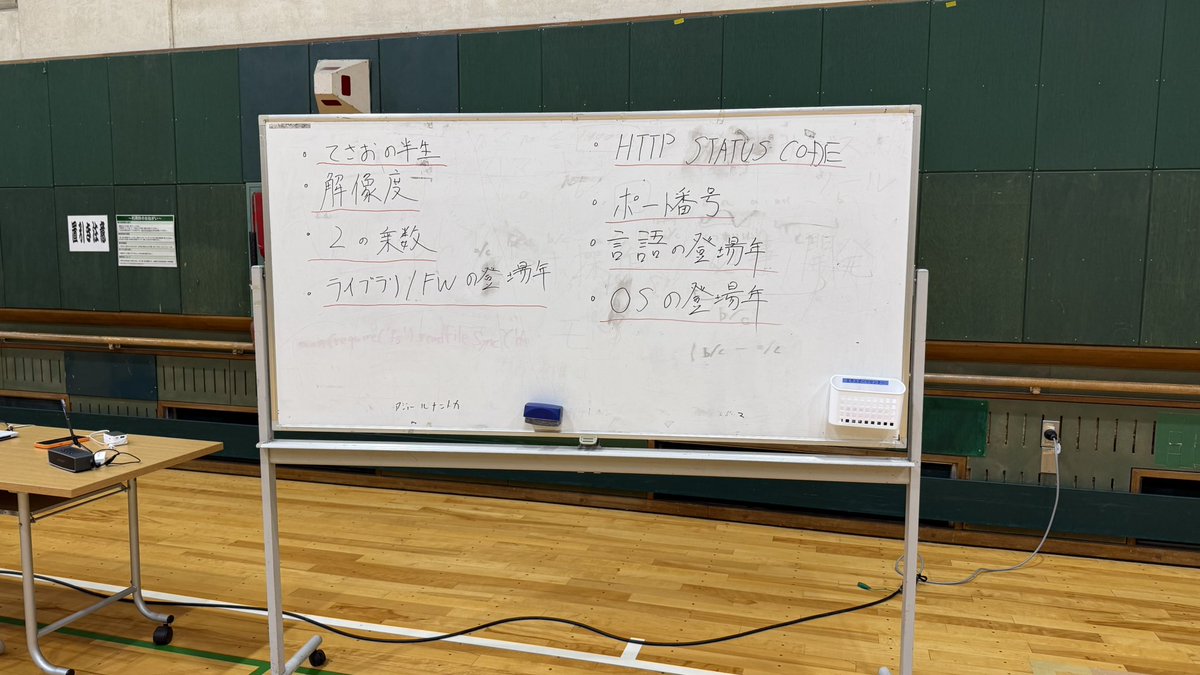 ・てさおの半生
・解像度
・2の乗数
・ライブラリ/FWの登場年
・HTTP STATUS CODE
・ポート番号
・言語の登場年
・OSの登場年
置引き注意